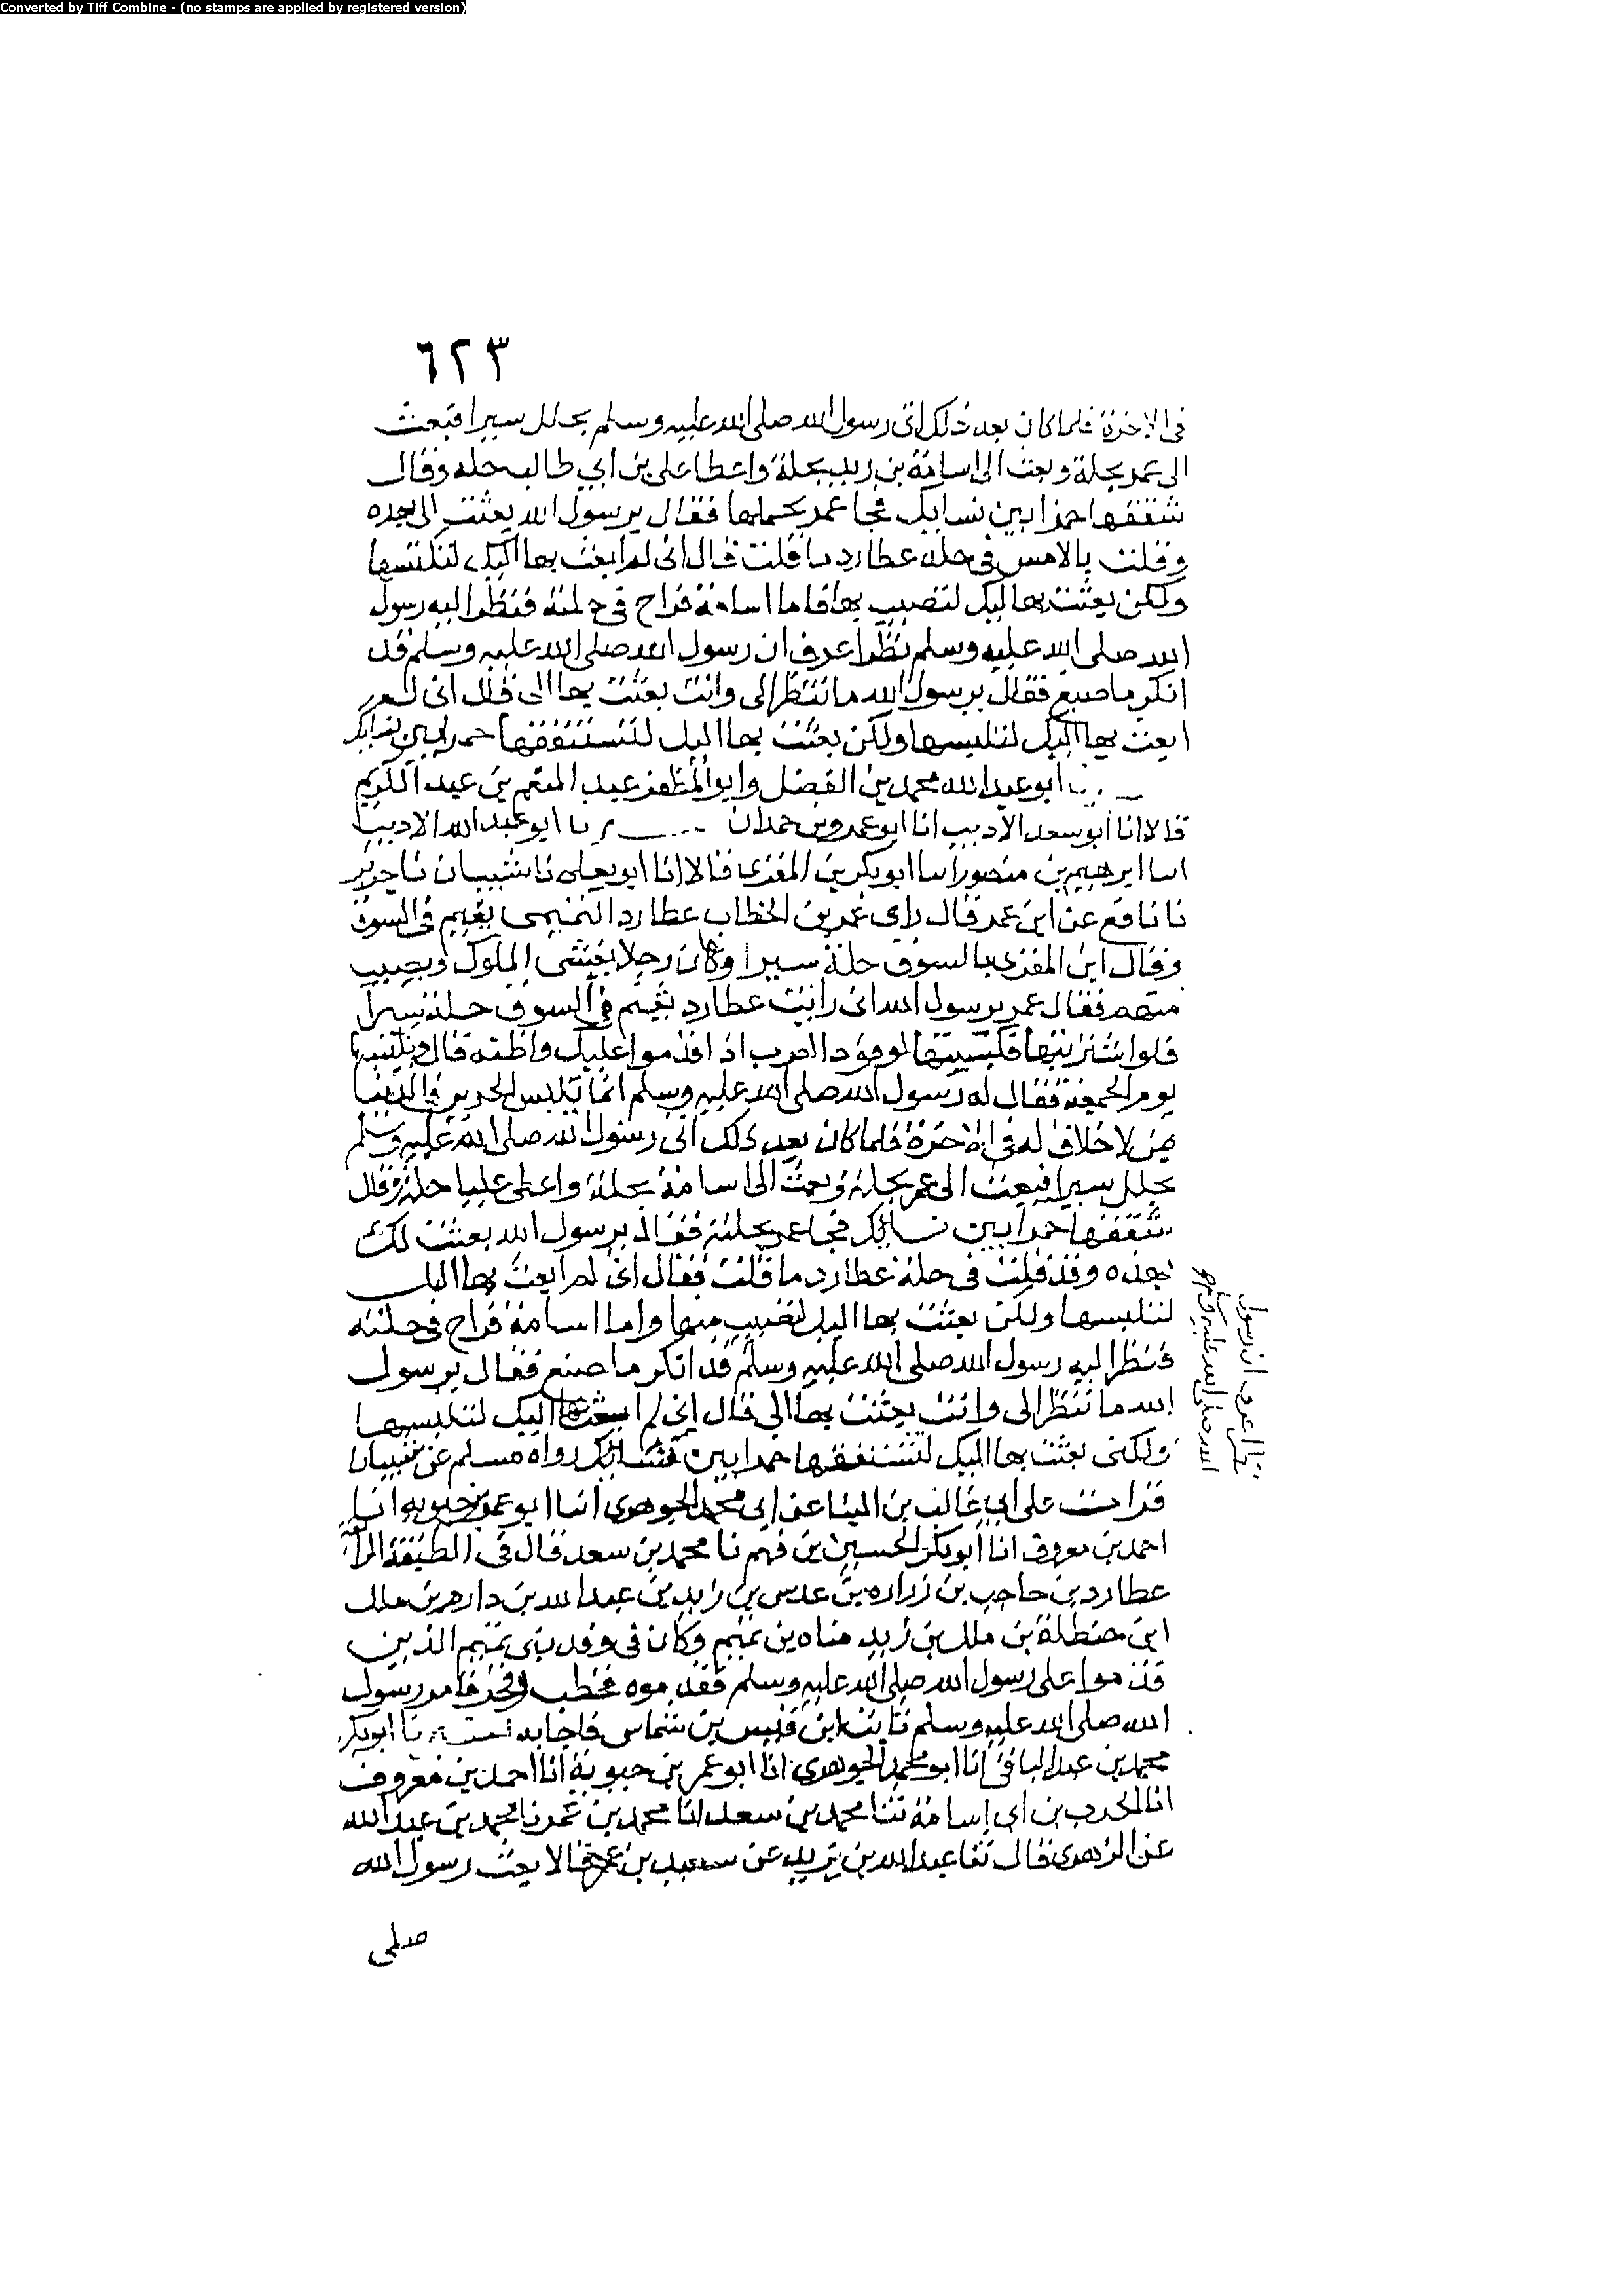 Converted by Tiff Combine - (no stamps are applied by registered version)
٦٢٣
في الاخرة فلما كان بعد ذلك اتى رسول الله صلى الله عليه وسلم بحلل سيرا فبعث
الى عمر بحلة وبعث الى اسامة بن زيد بحلة واعطا على بن ابي طالب حله وقال
شققها خمرا بين نسايك فجا عمر بحملها فقال يرسول الله بعثت الى بهذه
وقلت بالامس في حله عطارد ما قلت قال انى لم ابعث بها اليك لتكتسها
ولكن بعثت بها ليك لتصيب بها فاما اسامة فراح في حلته فنظر اليه رسول
الله صلى الله عليه وسلم نظرا عرف ان رسول الله صلى الله عليه وسلم قد
انكر ما صنع فقال يرسول الله ما تنظر الى وانت بعثت بها الى فلل انى لم
ابعث بها اليك لتلبسها ولكن بعثت بها اليك لتستشققها خمرا بين نسايك
ابو عبد الله محمد بن الفضل وابو المظفر عبد المنعم بن عبد الكريم
قالا انا ابو سعد الاديب انا ابو عمرو بن حمدان نا ابو عبد الله الاديب
انا ابرهيم بن منصور انا ابو بكر بن المقرى قالا انا ابو يعلى نا شيبان نا جرير
نا نافع عن ابن عمر قال راى عمر بن الخطاب عطارد التميمى يقيم في السوق
وقال ابن المقرى بالسوق حلة سيرا وكان رجلا يغشى الملوك ويصيب
منهم فقال عمر يرسول الله انى رايت عطارد يقيم في السوق حلة سيرا
فلو اشتريتها فلبستها لوفود العرب اذا قدموا عليك واظنه قال ولبستها
يوم الجمعة فقال له رسول الله صلى الله عليه وسلم انما يلبس الحرير في الدنيا
من لا خلاق له في الاخرة فلما كان بعد ذلك اتى رسول الله صلى الله عليه وسلم
بحلل سيرا فبعث الى عمر بحلة وبعث الى اسامة بحلة واعطى عليا حلة وقال
شققها خمرا بين نسايك فجا عمر بحلته فقال يرسول الله بعثت لك
بهذه وقد قلت في حلة عطارد ما قلت فقال انى لم ابعث بها اليك
لتلبسها ولكن بعثت بها اليك لتصيب منها واما اسامة فراح في حلته
فنظر اليه رسول الله صلى الله عليه وسلم قد انكر ما صنع فقال يرسول
الله ما تنظر الى وانت بعثت بها الي قال انى لم ابعث بها اليك لتلبسها
ولكنى بعثت بها اليك لتشققها خمرا بين نسايك رواه مسلم عن شيبان
نظرا عرف ان رسول
الله صلى الله عليه وسلم
قرات على ابي غالب بن البنا عن ابى محمد الجوهرى انا ابو عمر بن حيويه انا
احمد بن معروف انا ابو بكر الحسين بن فهم نا محمد بن سعد قال في الطبقة الرابعة
عطارد بن حاجب بن زراره بن عدس بن زيد بن عبد الله بن دارم بن ملك
ابن حنظلة بن ملك بن زيد مناه بن تميم وكان في وفد بنى تميم الذين
قدموا على رسول الله صلى الله عليه وسلم فقدموه فخطب وفخر فامر رسول
الله صلى الله عليه وسلم ثابت ابن قيس بن شماس فاجابه نا ابو بكر
محمد بن عبد الباقى انا ابو محمد الجوهرى انا ابو عمر بن حيوية انا احمد بن معروف
انا الحرب بن ابى اسامة ثنا محمد بن سعد انا محمد بن عمر نا محمد بن عبد الله
عن الزهرى قال ثنا عبد الله بن يزيد عن سعيد بن عمرو قالا بعث رسول الله
صلى